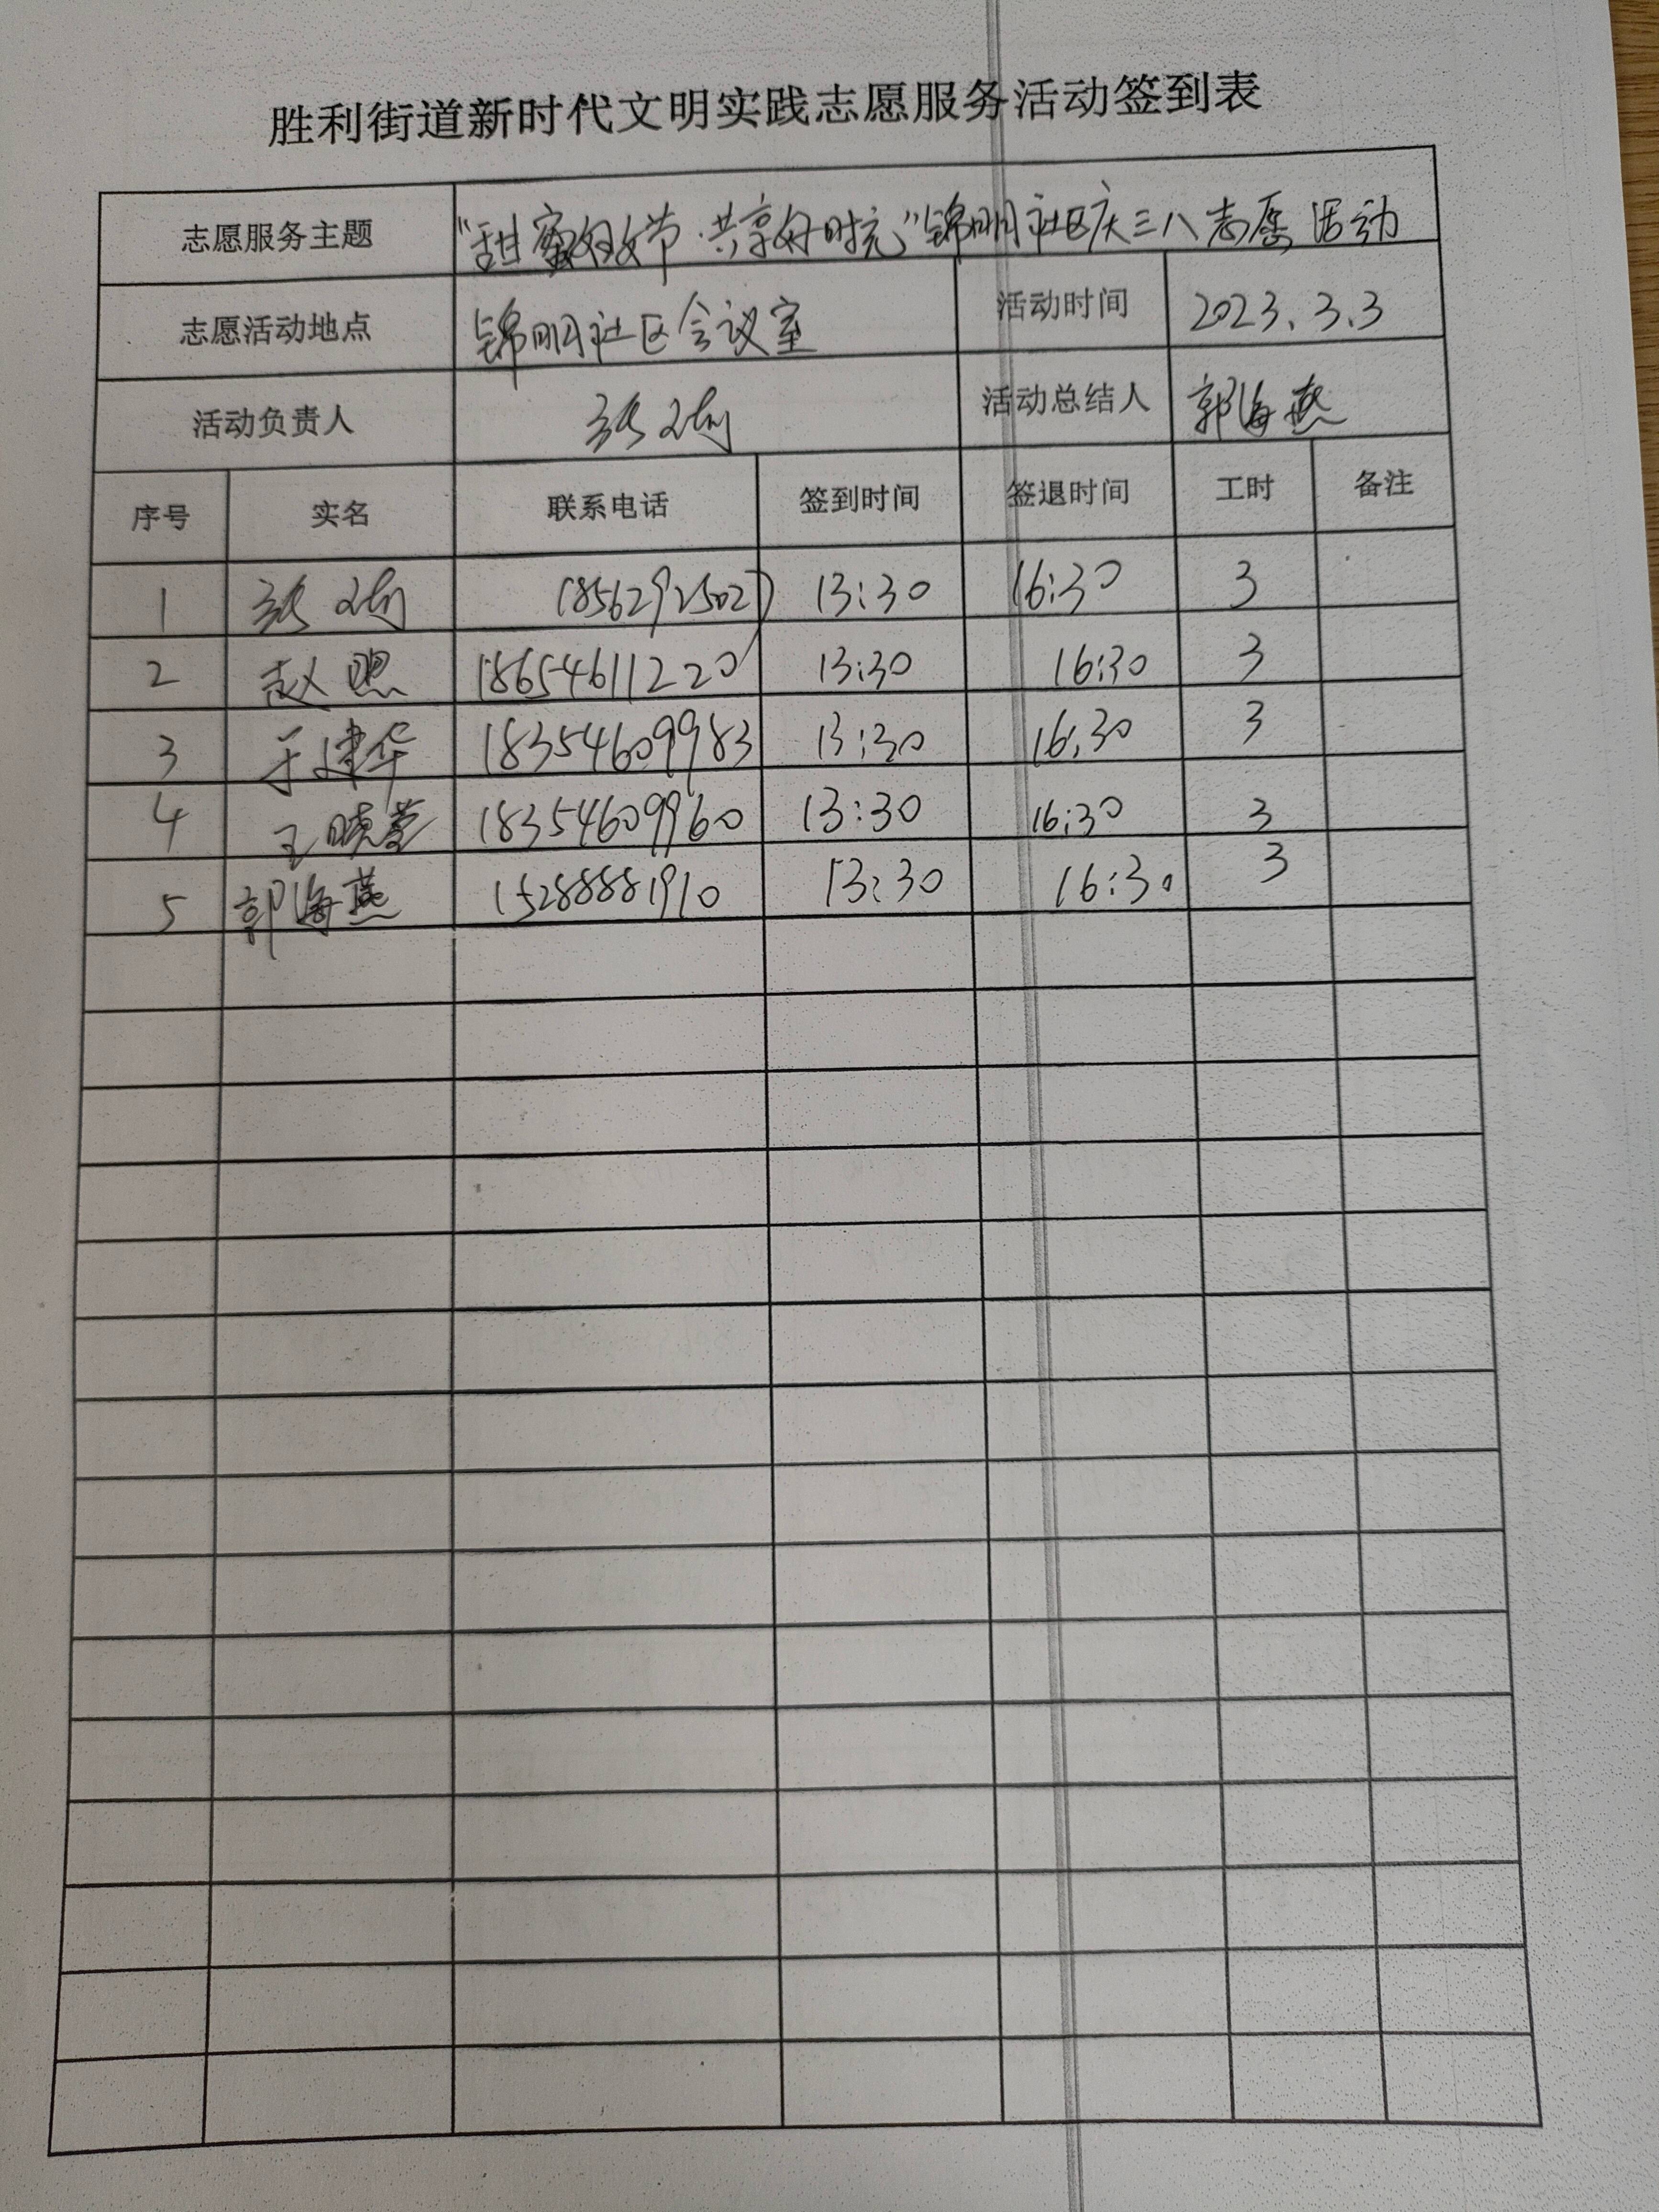 胜利街道新时代文明实践志愿服务活动签到表
志愿服务主题 "甜蜜妇女节·共享好时光"锦明社区庆三八志愿活动
志愿活动地点 锦明社区会议室 活动时间 2023.3.3
活动负责人 张 活动总结人 郭海燕
序号 实名 联系电话 签到时间 签退时间 工时 备注
1 张 13:30 16:30 3
2 赵 18654611220 13:30 16:30 3
3 于建华 18354609983 13:30 16:30 3
4 王晓莹 18354609960 13:30 16:30 3
5 郭海燕 15288881910 13:30 16:30 3